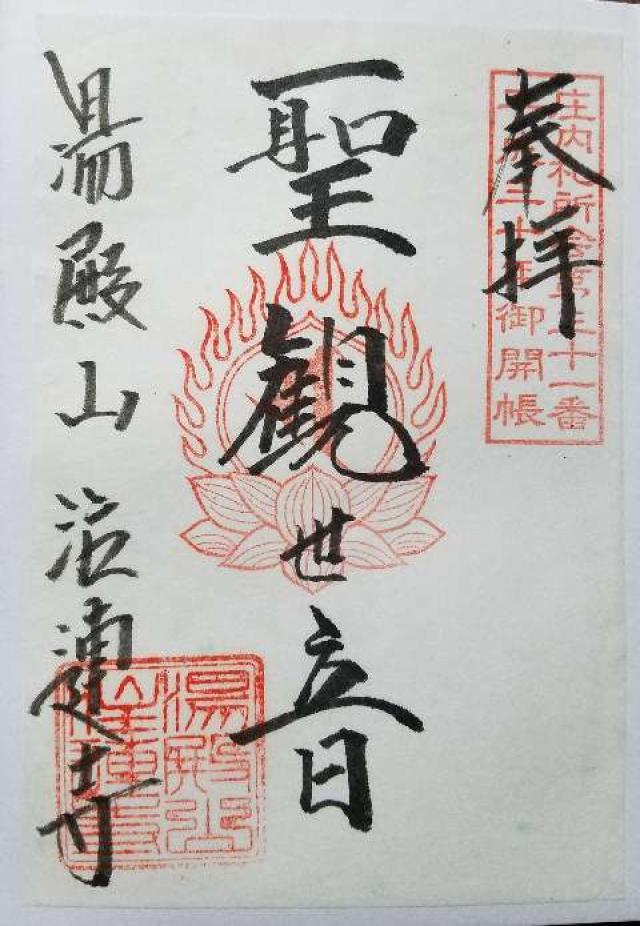 奉拝
庄内札所会第三十一番
御開帳
聖観世音
湯殿山注連寺
湯殿山
注連寺